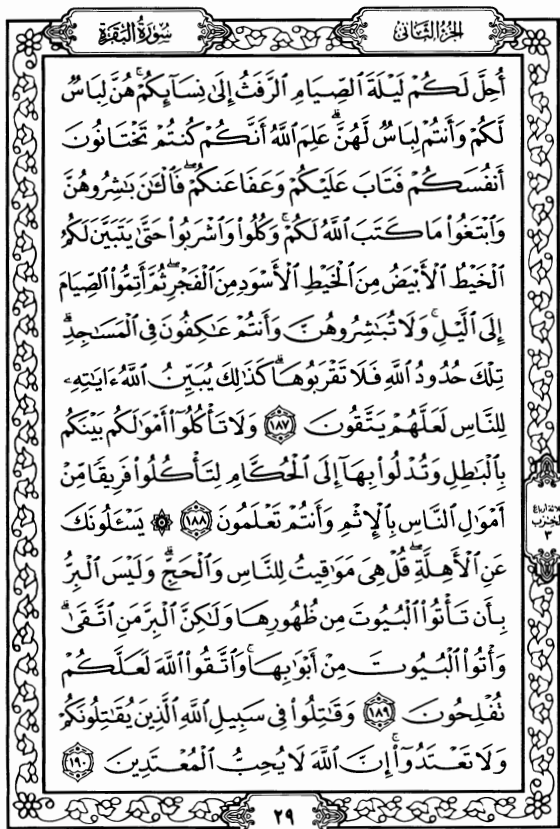 الجزء الثاني
سورة البقرة
أُحِلَّ لَكُمْ لَيْلَةَ ٱلصِّيَامِ ٱلرَّفَثُ إِلَىٰ نِسَآئِكُمْ ۚ هُنَّ لِبَاسٌ
لَّكُمْ وَأَنتُمْ لِبَاسٌ لَّهُنَّ ۗ عَلِمَ ٱللَّهُ أَنَّكُمْ كُنتُمْ تَخْتَانُونَ
أَنفُسَكُمْ فَتَابَ عَلَيْكُمْ وَعَفَا عَنكُمْ ۖ فَٱلْـَٰٔنَ بَـٰشِرُوهُنَّ
وَٱبْتَغُوا۟ مَا كَتَبَ ٱللَّهُ لَكُمْ ۚ وَكُلُوا۟ وَٱشْرَبُوا۟ حَتَّىٰ يَتَبَيَّنَ لَكُمُ
ٱلْخَيْطُ ٱلْأَبْيَضُ مِنَ ٱلْخَيْطِ ٱلْأَسْوَدِ مِنَ ٱلْفَجْرِ ۖ ثُمَّ أَتِمُّوا۟ ٱلصِّيَامَ
إِلَى ٱلَّيْلِ ۚ وَلَا تُبَـٰشِرُوهُنَّ وَأَنتُمْ عَـٰكِفُونَ فِى ٱلْمَسَـٰجِدِ ۗ
تِلْكَ حُدُودُ ٱللَّهِ فَلَا تَقْرَبُوهَا ۗ كَذَٰلِكَ يُبَيِّنُ ٱللَّهُ ءَايَـٰتِهِۦ
لِلنَّاسِ لَعَلَّهُمْ يَتَّقُونَ ١٨٧ وَلَا تَأْكُلُوٓا۟ أَمْوَٰلَكُم بَيْنَكُم
بِٱلْبَـٰطِلِ وَتُدْلُوا۟ بِهَآ إِلَى ٱلْحُكَّامِ لِتَأْكُلُوا۟ فَرِيقًا مِّنْ
أَمْوَٰلِ ٱلنَّاسِ بِٱلْإِثْمِ وَأَنتُمْ تَعْلَمُونَ ١٨٨ ۞ يَسْـَٔلُونَكَ
عَنِ ٱلْأَهِلَّةِ ۖ قُلْ هِىَ مَوَٰقِيتُ لِلنَّاسِ وَٱلْحَجِّ ۗ وَلَيْسَ ٱلْبِرُّ
بِأَن تَأْتُوا۟ ٱلْبُيُوتَ مِن ظُهُورِهَا وَلَـٰكِنَّ ٱلْبِرَّ مَنِ ٱتَّقَىٰ ۗ
وَأْتُوا۟ ٱلْبُيُوتَ مِنْ أَبْوَٰبِهَا ۚ وَٱتَّقُوا۟ ٱللَّهَ لَعَلَّكُمْ
تُفْلِحُونَ ١٨٩ وَقَـٰتِلُوا۟ فِى سَبِيلِ ٱللَّهِ ٱلَّذِينَ يُقَـٰتِلُونَكُمْ
وَلَا تَعْتَدُوٓا۟ ۚ إِنَّ ٱللَّهَ لَا يُحِبُّ ٱلْمُعْتَدِينَ ١٩٠
ثلاثة أرباع
الحزب
٣
٢٩